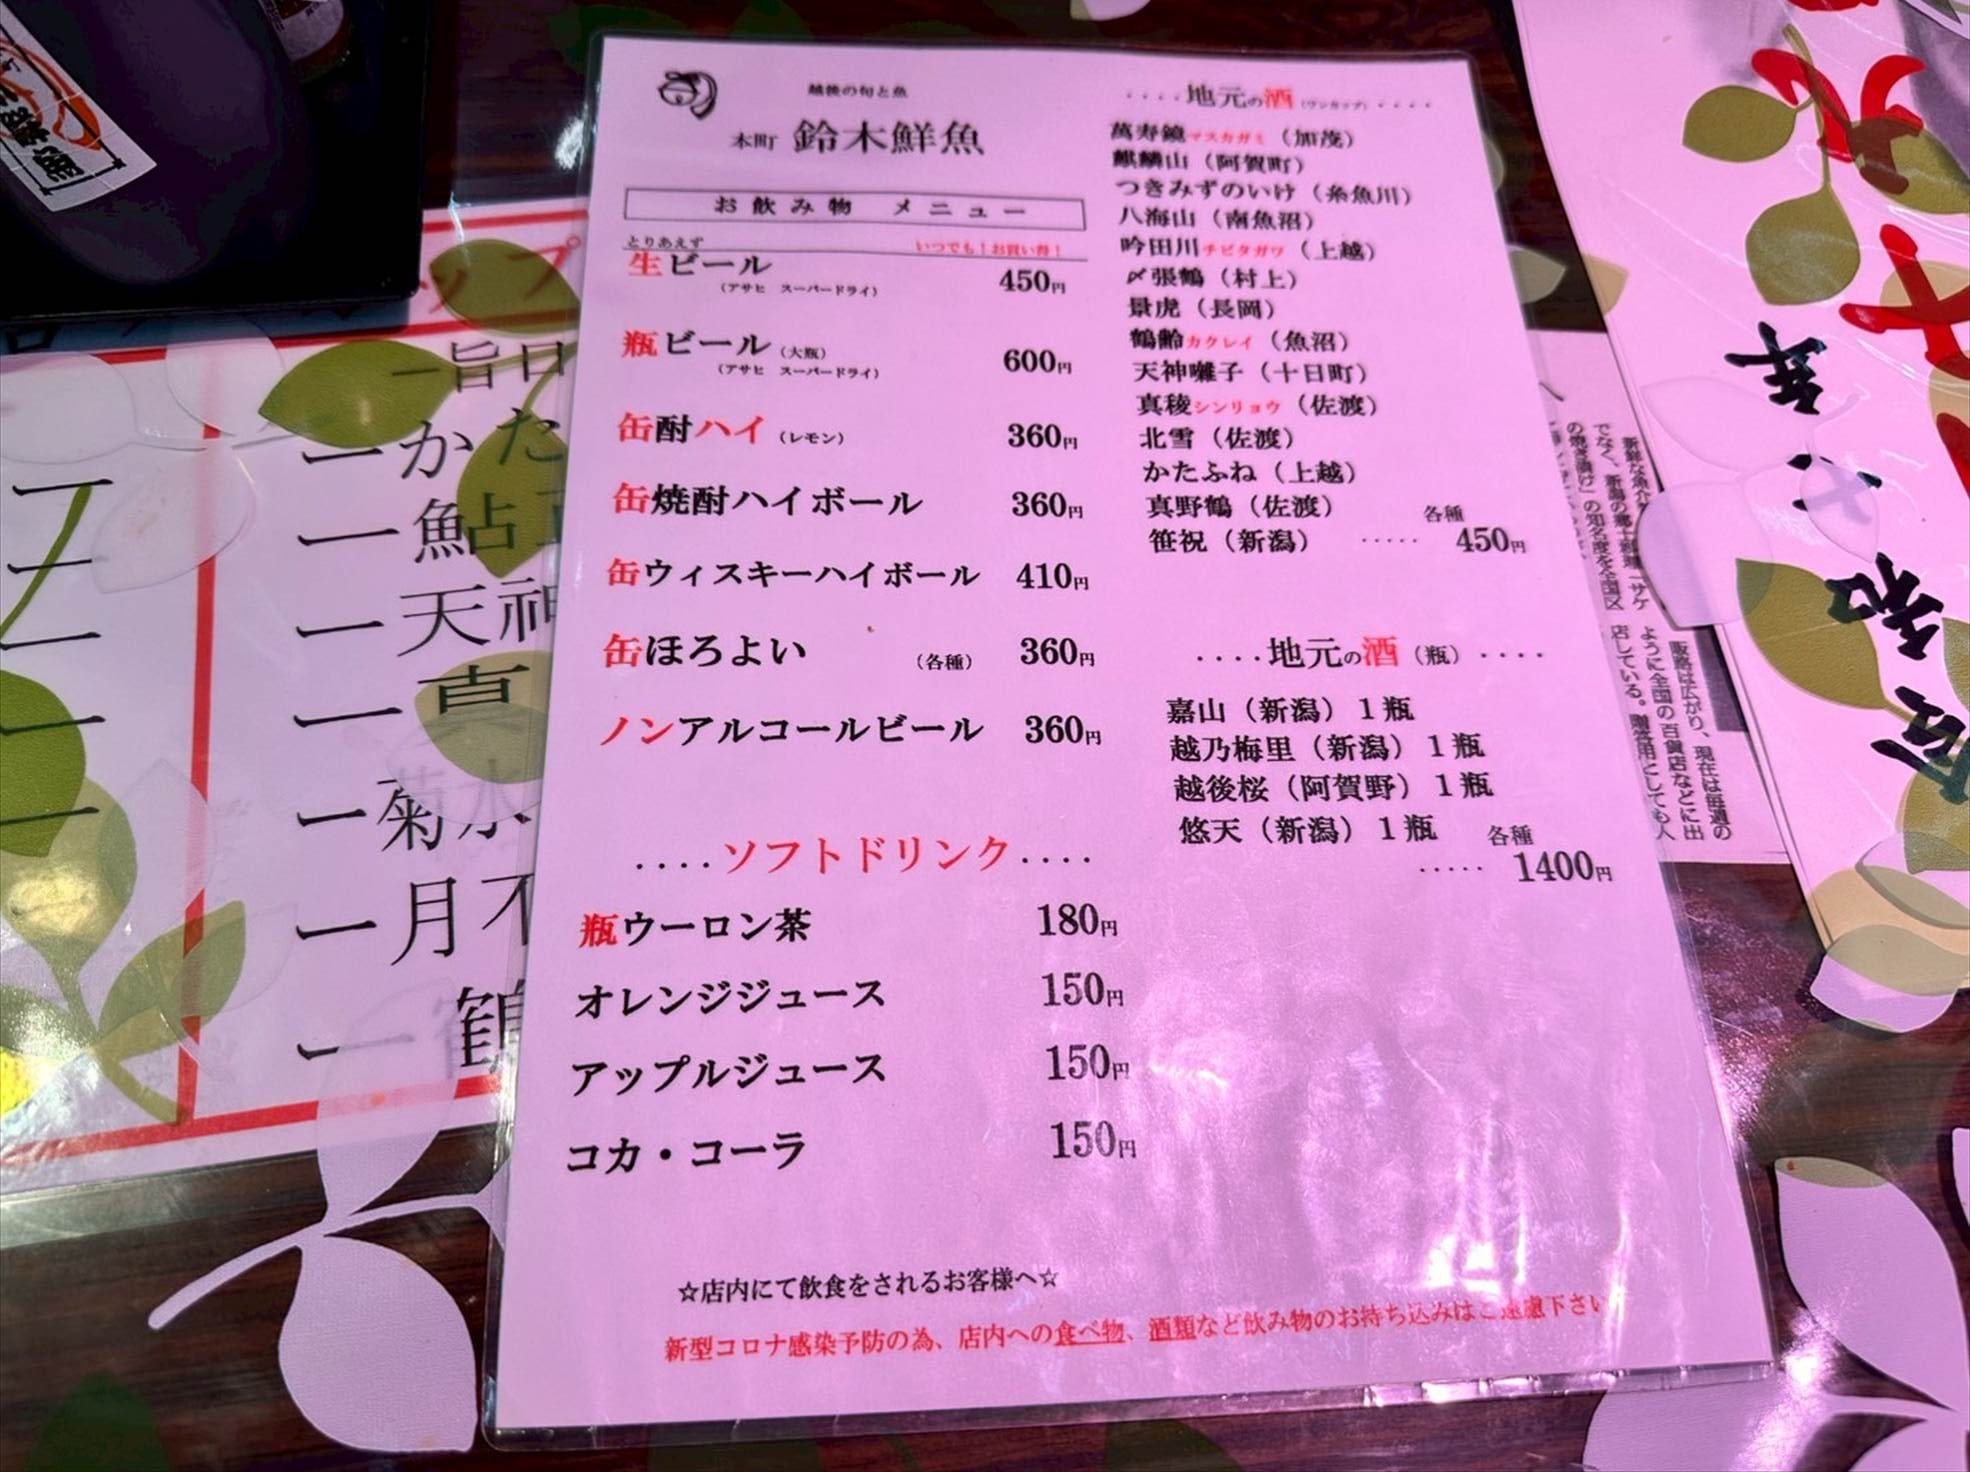 越後の旬と魚
本町 鈴木鮮魚
お飲み物 メニュー
とりあえず いつでも！お買い得！
生ビール 450円
（アサヒ スーパードライ）
瓶ビール（大瓶） 600円
（アサヒ スーパードライ）
缶酎ハイ（レモン） 360円
缶焼酎ハイボール 360円
缶ウィスキーハイボール 410円
缶ほろよい （各種） 360円
ノンアルコールビール 360円
････ソフトドリンク････
瓶ウーロン茶 180円
オレンジジュース 150円
アップルジュース 150円
コカ・コーラ 150円
････地元の酒（ワンカップ）････
萬寿鏡マスカガミ（加茂）
麒麟山（阿賀町）
つきみずのいけ（糸魚川）
八海山（南魚沼）
吟田川チビタガワ（上越）
〆張鶴（村上）
景虎（長岡）
鶴齢カクレイ（魚沼）
天神囃子（十日町）
真稜シンリョウ（佐渡）
北雪（佐渡）
かたふね（上越）
真野鶴（佐渡） 各種
笹祝（新潟） ･････ 450円
････地元の酒（瓶）････
嘉山（新潟）１瓶
越乃梅里（新潟）１瓶
越後桜（阿賀野）１瓶
悠天（新潟）１瓶 各種
･････ 1400円
☆店内にて飲食をされるお客様へ☆
新型コロナ感染予防の為、店内への食べ物、酒類など飲み物のお持ち込みはご遠慮下さい
ップ
一かた
一鮎
一天神
一真
一菊水
一月不
一鶴
でなく、新潟の郷土料理「サケ
の焼き漬け」の知名度を全国区
販路は広がり、現在は毎週の
ように全国の百貨店などに出
店している。贈答用としても人